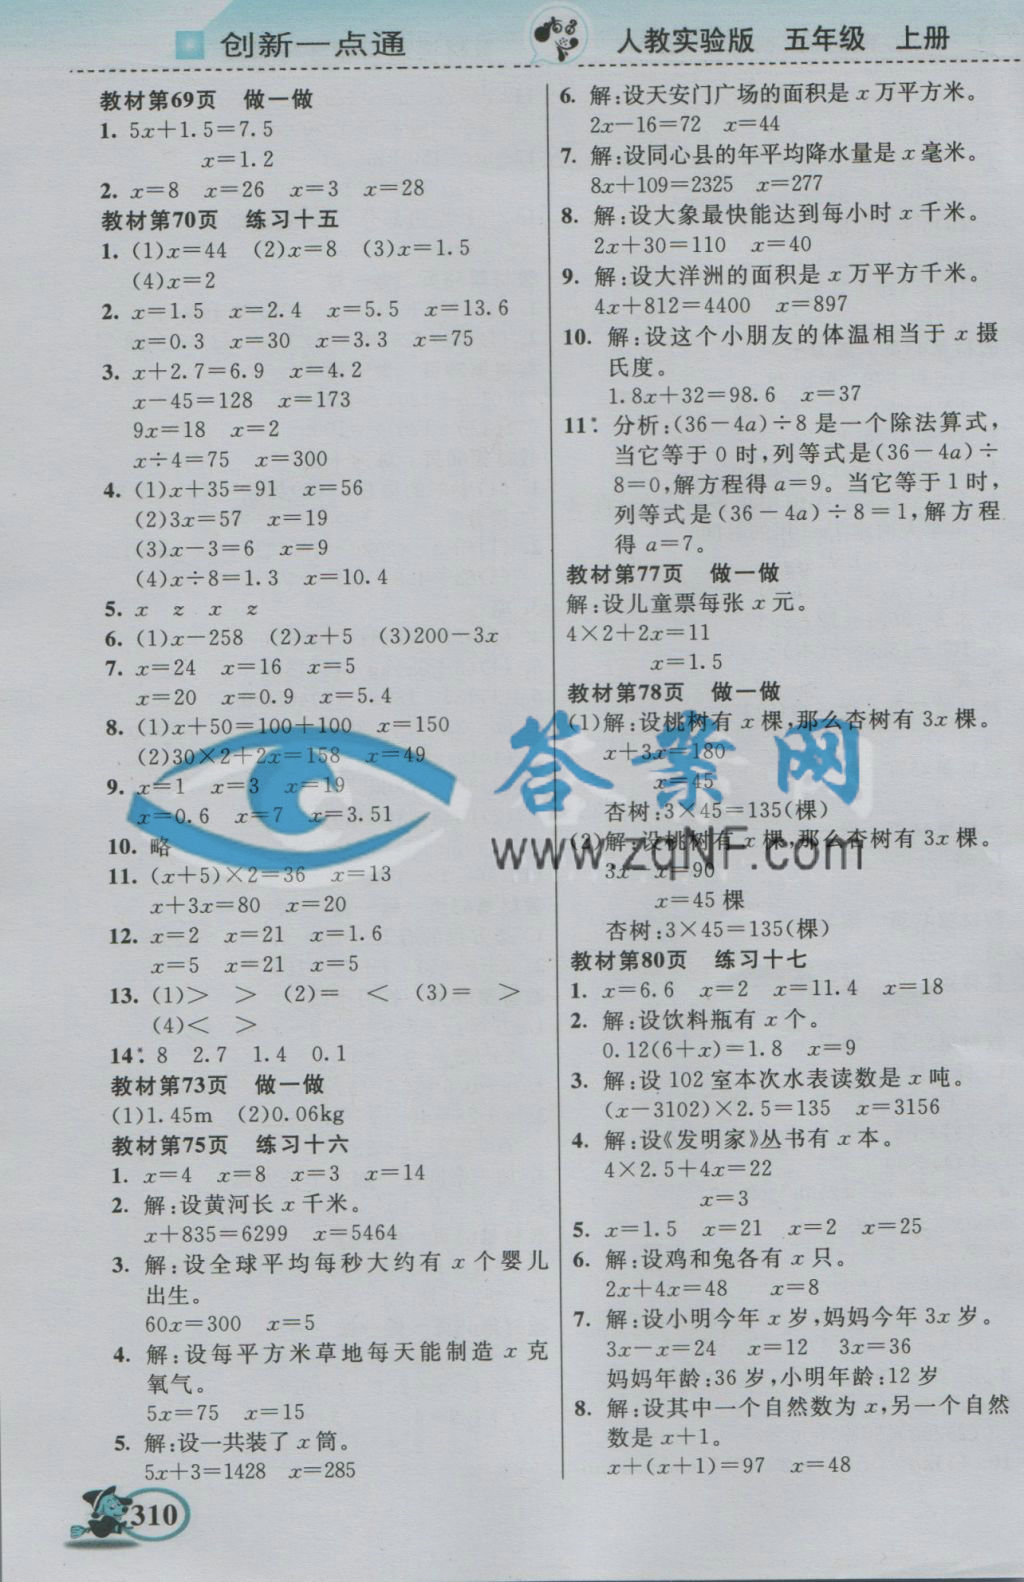 创新一点通
人教实验版 五年级 上册
教材第69页 做一做
1. 5x+1.5=7.5
x=1.2
2. x=8 x=26 x=3 x=28
教材第70页 练习十五
1. (1)x=44 (2)x=8 (3)x=1.5
(4)x=2
2. x=1.5 x=2.4 x=5.5 x=13.6
x=0.3 x=30 x=3.3 x=75
3. x+2.7=6.9 x=4.2
x-45=128 x=173
9x=18 x=2
x÷4=75 x=300
4. (1)x+35=91 x=56
(2)3x=57 x=19
(3)x-3=6 x=9
(4)x÷8=1.3 x=10.4
5. x z x z
6. (1)x-258 (2)x+5 (3)200-3x
7. x=24 x=16 x=5
x=20 x=0.9 x=5.4
8. (1)x+50=100+100 x=150
(2)30×2+2x=158 x=49
9. x=1 x=3 x=19
x=0.6 x=7 x=3.51
10. 略
11. (x+5)×2=36 x=13
x+3x=80 x=20
12. x=2 x=21 x=1.6
x=5 x=21 x=5
13. (1)> > (2)= < (3)= >
(4)< >
14*. 8 2.7 1.4 0.1
教材第73页 做一做
(1)1.45m (2)0.06kg
教材第75页 练习十六
1. x=4 x=8 x=3 x=14
2. 解:设黄河长 x 千米。
x+835=6299 x=5464
3. 解:设全球平均每秒大约有 x 个婴儿
出生。
60x=300 x=5
4. 解:设每平方米草地每天能制造 x 克
氧气。
5x=75 x=15
5. 解:设一共装了 x 筒。
5x+3=1428 x=285
6. 解:设天安门广场的面积是 x 万平方米。
2x-16=72 x=44
7. 解:设同心县的年平均降水量是 x 毫米。
8x+109=2325 x=277
8. 解:设大象最快能达到每小时 x 千米。
2x+30=110 x=40
9. 解:设大洋洲的面积是 x 万平方千米。
4x+812=4400 x=897
10. 解:设这个小朋友的体温相当于 x 摄
氏度。
1.8x+32=98.6 x=37
11*. 分析:(36-4a)÷8 是一个除法算式,
当它等于 0 时,列等式是(36-4a)÷
8=0,解方程得 a=9。当它等于 1 时,
列等式是(36-4a)÷8=1,解方程
得 a=7。
教材第77页 做一做
解:设儿童票每张 x 元。
4×2+2x=11
x=1.5
教材第78页 做一做
(1)解:设桃树有 x 棵,那么杏树有 3x 棵。
x+3x=180
x=45
杏树:3×45=135(棵)
(2)解:设桃树有 x 棵,那么杏树有 3x 棵。
3x-x=90
x=45 棵
杏树:3×45=135(棵)
教材第80页 练习十七
1. x=6.6 x=2 x=11.4 x=18
2. 解:设饮料瓶有 x 个。
0.12(6+x)=1.8 x=9
3. 解:设 102 室本次水表读数是 x 吨。
(x-3102)×2.5=135 x=3156
4. 解:设《发明家》丛书有 x 本。
4×2.5+4x=22
x=3
5. x=1.5 x=21 x=2 x=25
6. 解:设鸡和兔各有 x 只。
2x+4x=48 x=8
7. 解:设小明今年 x 岁,妈妈今年 3x 岁。
3x-x=24 x=12 3x=36
妈妈年龄:36 岁,小明年龄:12 岁
8. 解:设其中一个自然数为 x,另一个自然
数是 x+1。
x+(x+1)=97 x=48
答案网
www.zqNF.com
310